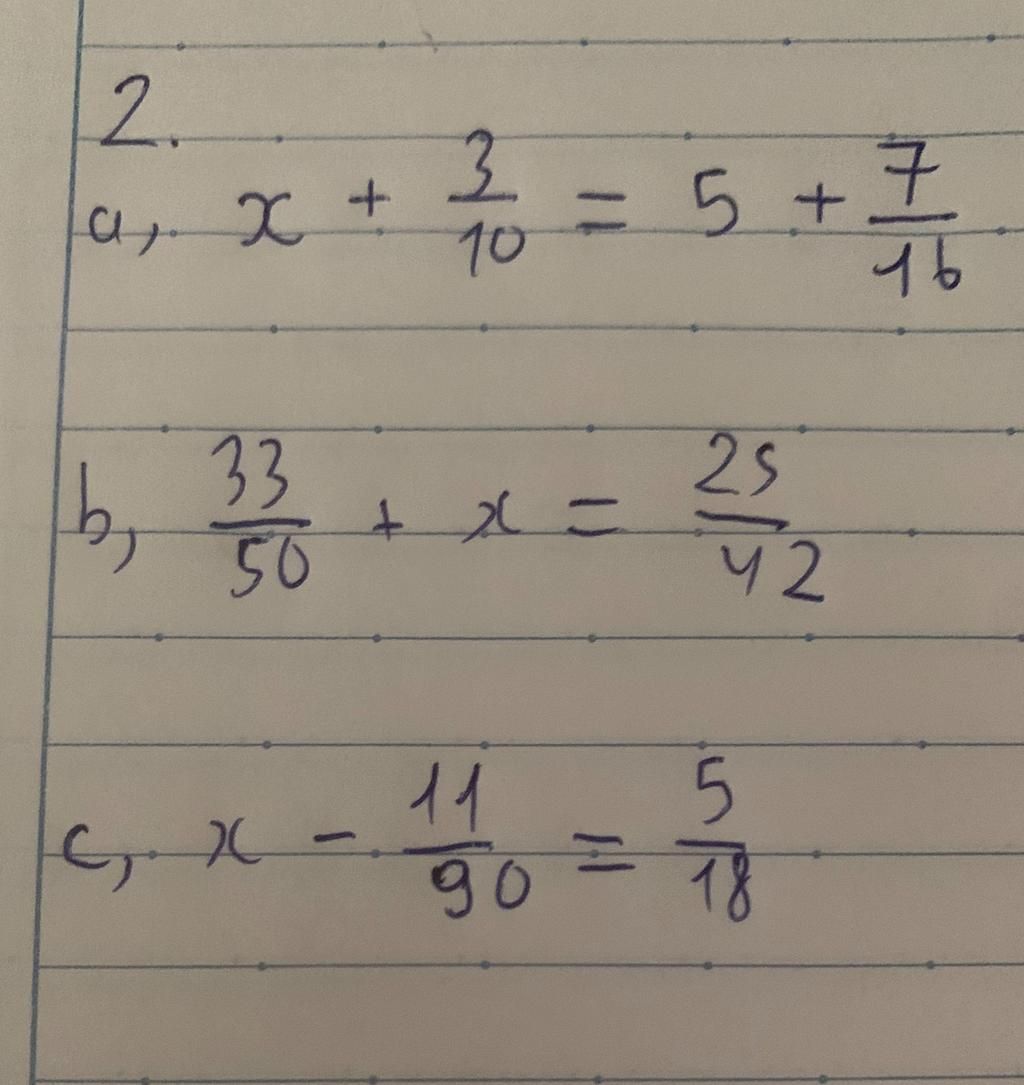 2.
a, x + 3/10 = 5 + 7/16
b, 33/50 + x = 25/42
c, x - 11/90 = 5/18